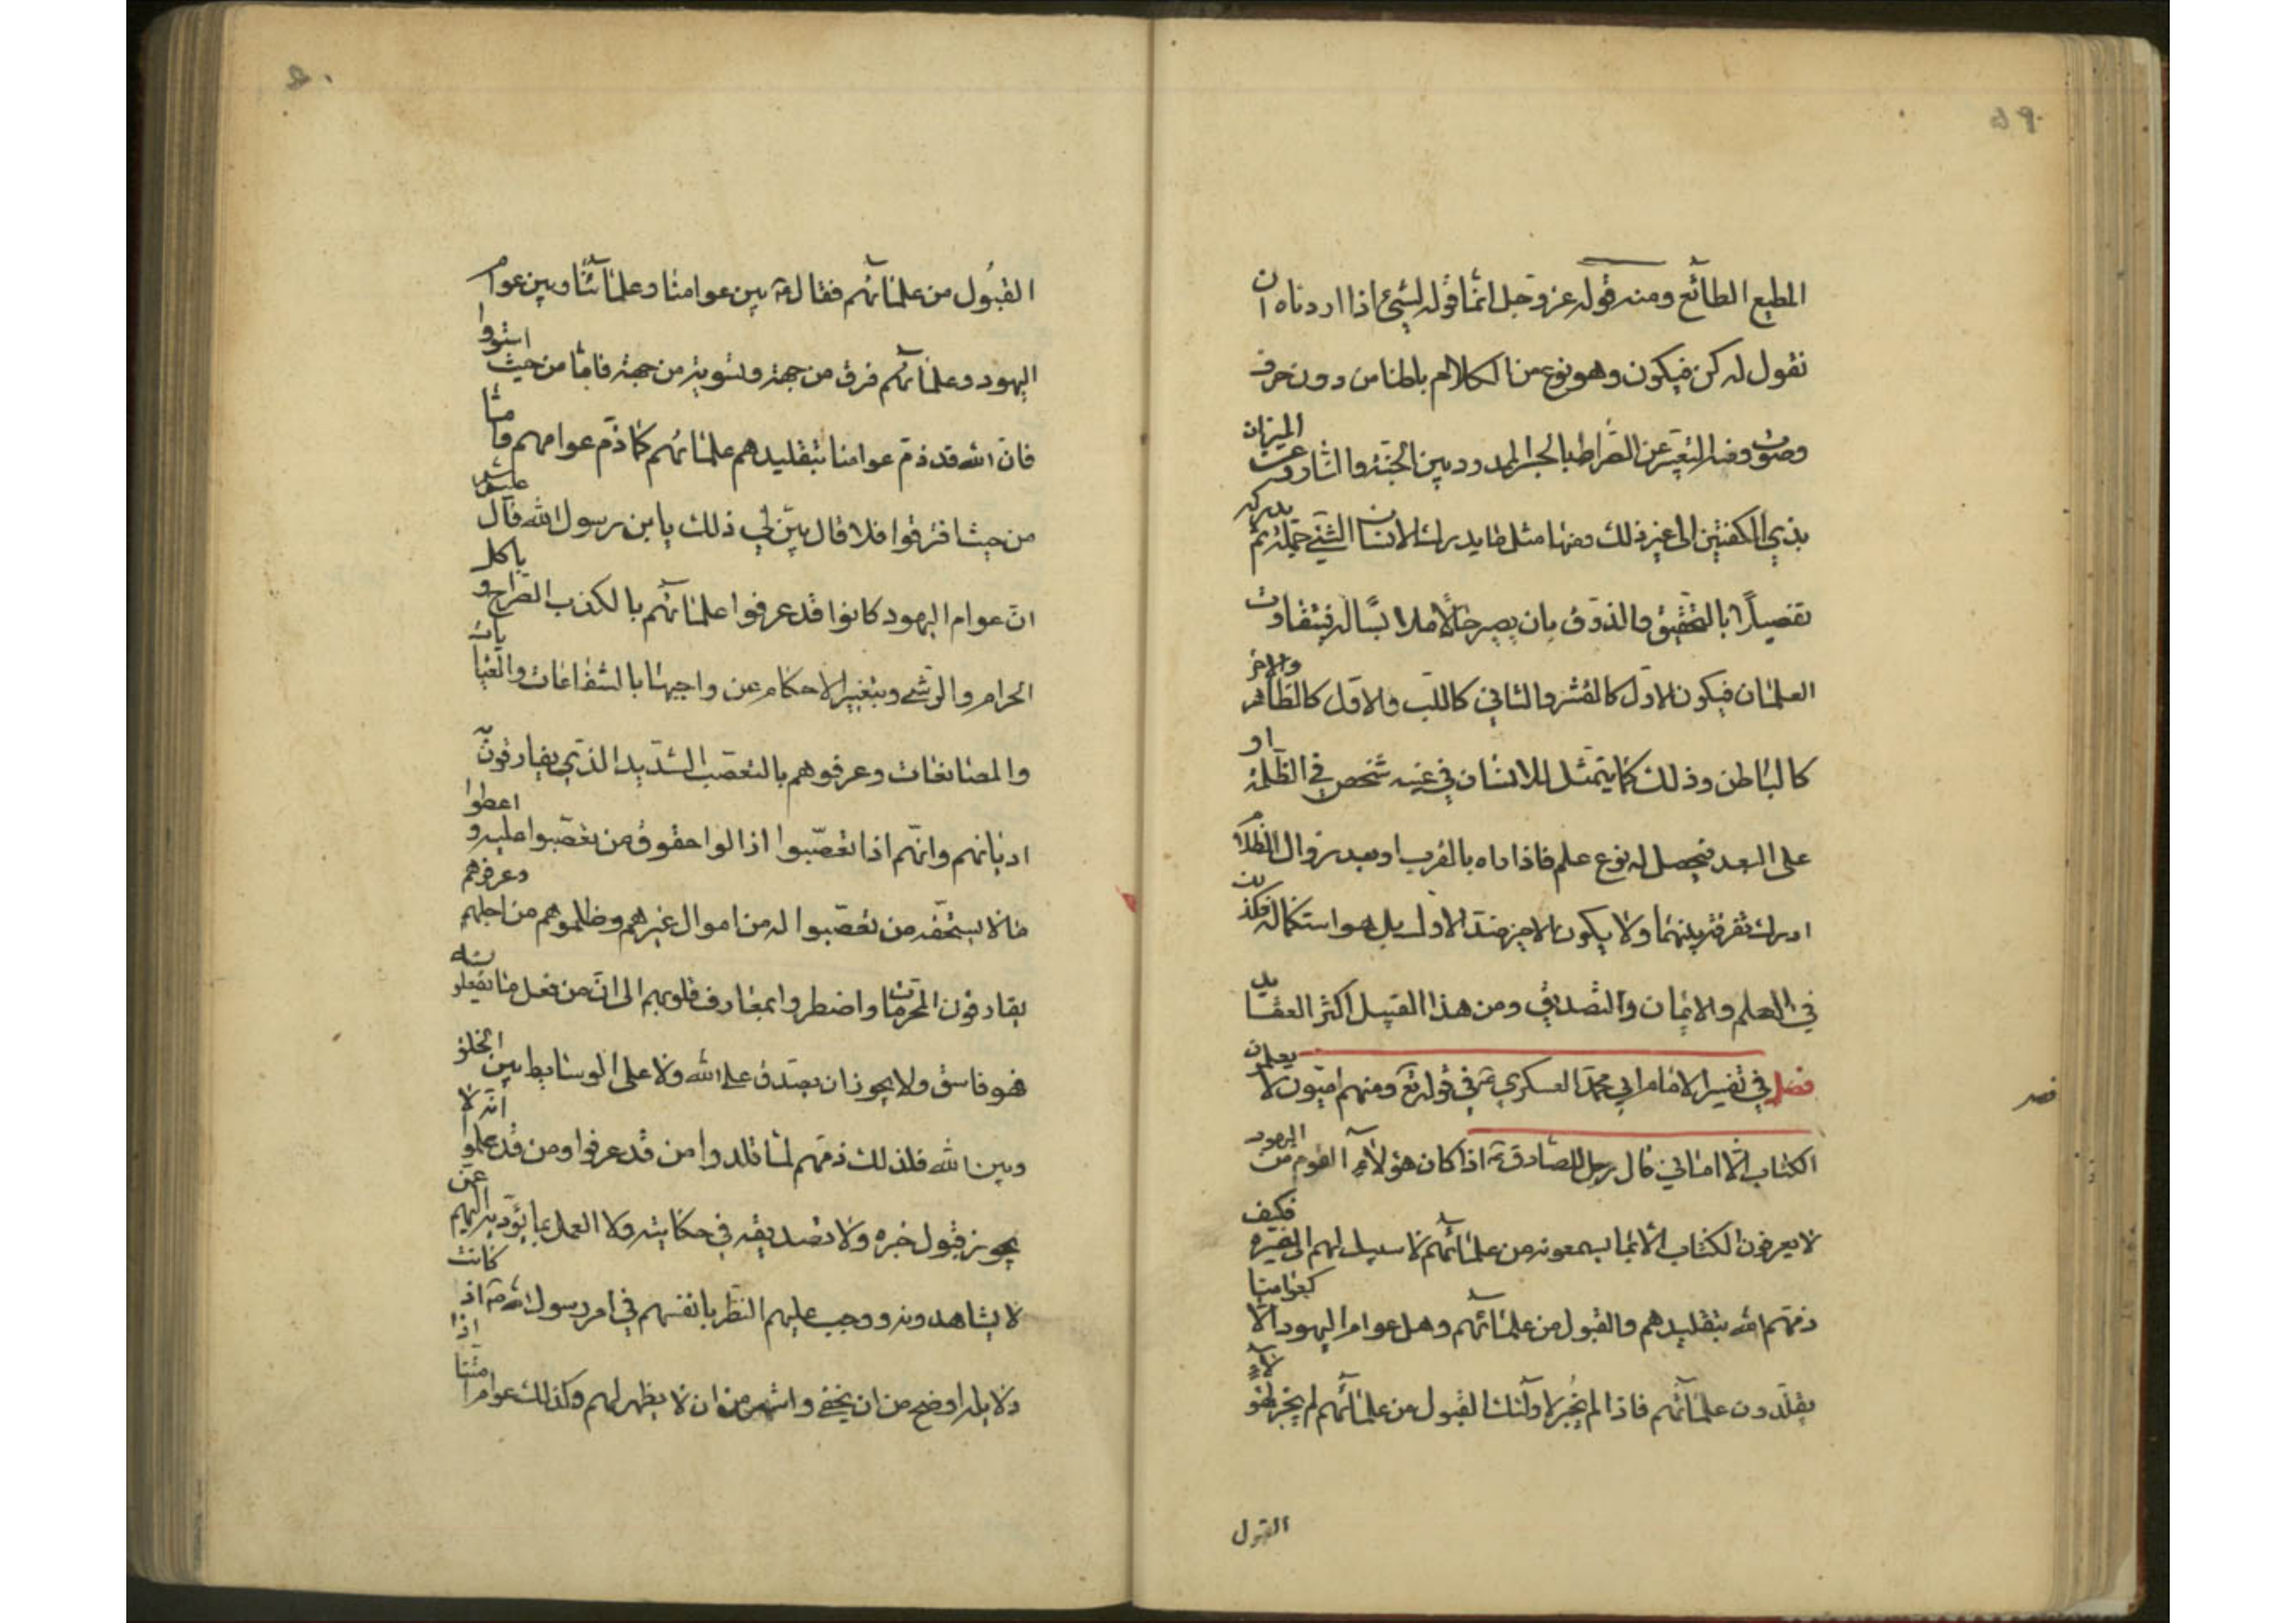 ٥٩
المطيع الطائع ومنه قوله عز وجل انما قوله لشيئ اذا اردناه ان
نقول له كن فيكون وهو نوع من الكلام باطنا من دون حرف
وصوت ومنه التعبير عن الصراط بالجسر الممدود بين الجنة والنار وعن الميزان
بذي الكفتين الى غير ذلك ومنها مثل ما يدرك الانسان الشيئ جملة ثم يدركه
تفصيلا بالتحقيق والذوق بان يصير حالا ملابسا له فيتفاوت
العلمان فيكون الاول كالقشر والثاني كاللب والاول كالظاهر والاخر
كالباطن وذلك كما يتمثل للانسان في عينه شخص في الظلمة او
على البعد فيحصل له نوع علم فاذا راه بالقرب او بعد زوال الظلام
ادرك تفرقة بينهما ولا يكون الاخير ضد الاول بل هو استكمال له فكذلك
في العلم والايمان والتصديق ومن هذا القبيل اكثر العقايد
فصل في تفسير الامام ابي محمد العسكري ع في قوله تع ومنهم اميون لا يعلمون
الكتاب الا اماني قال رجل للصادق ع اذا كان هؤلاء القوم من اليهود
لا يعرفون الكتاب الا بما يسمعونه من علمائهم لا سبيل لهم الى غيره فكيف
ذمهم الله بتقليدهم والقبول من علمائهم وهل عوام اليهود الا كعوامنا
يقلدون علمائهم فاذا لم يجز لاولئك القبول من علمائهم لم يجز لهؤلاء
القبول
القبول من علمائهم فقال ع بين عوامنا وعلمائنا وبين عوام
اليهود وعلمائهم فرق من جهة وتسوية من جهة فاما من حيث استووا
فان الله قد ذم عوامنا بتقليدهم علمائهم كما ذم عوامهم واما
من حيث افترقوا فلا قال بين لي ذلك يا بن رسول الله قال
ان عوام اليهود كانوا قد عرفوا علمائهم بالكذب الصراح و باكل
الحرام والرشى وبتغيير الاحكام عن واجبها بالشفاعات والعنايات
والمصانعات وعرفوهم بالتعصب الشديد الذي يفارقون به
اديانهم وانهم اذا تعصبوا ازالوا حقوق من تعصبوا عليه و اعطوا
ما لا يستحقه من تعصبوا له من اموال غيرهم وظلموهم من اجلهم وعرفوهم
يقارفون المحرمات واضطروا بمعارف قلوبهم الى ان من فعل ما يفعلونه
فهو فاسق ولا يجوز ان يصدق على الله ولا على الوسايط بين الخلق
وبين الله فلذلك ذمهم لما قلدوا من قد عرفوا ومن قد علموا انه لا
يجوز قبول خبره ولا تصديقه في حكايته ولا العمل بما يؤديه اليهم عمن
لا يشاهدونه ووجب عليهم النظر بانفسهم في امر رسول الله ص اذ كانت
دلايله اوضح من ان يخفى واشهر من ان لا يظهر لهم وكذلك عوام امتنا اذا